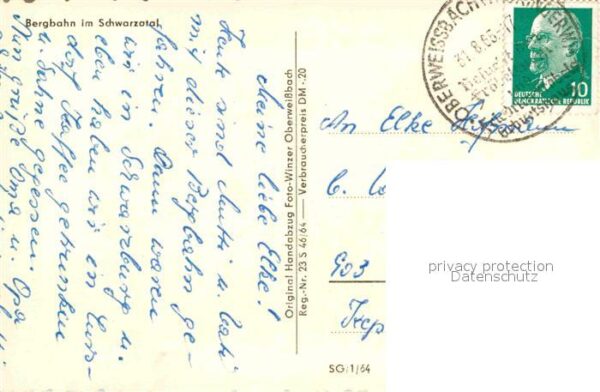 Bergbahn im Schwarzatal
Meine liebe Elke!
Heute sind Mutti u. Vati
mit dieser Bergbahn ge-
fahren. Dann waren
wir in Schwarzburg u.
eben haben wir in Curs-
dorf Kaffee getrunken
u. Sahne gegessen.
Nun grüßt Oma u. Opa
Original Handabzug Foto-Winzer Oberweißbach
Reg.-Nr. 23 S 46/64 — Verbraucherpreis DM -.20
OBERWEISSBACH
DEUTSCHE
DEMOKRATISCHE REPUBLIK
10
An Elke
903
SG/1/64
privacy protection
Datenschutz